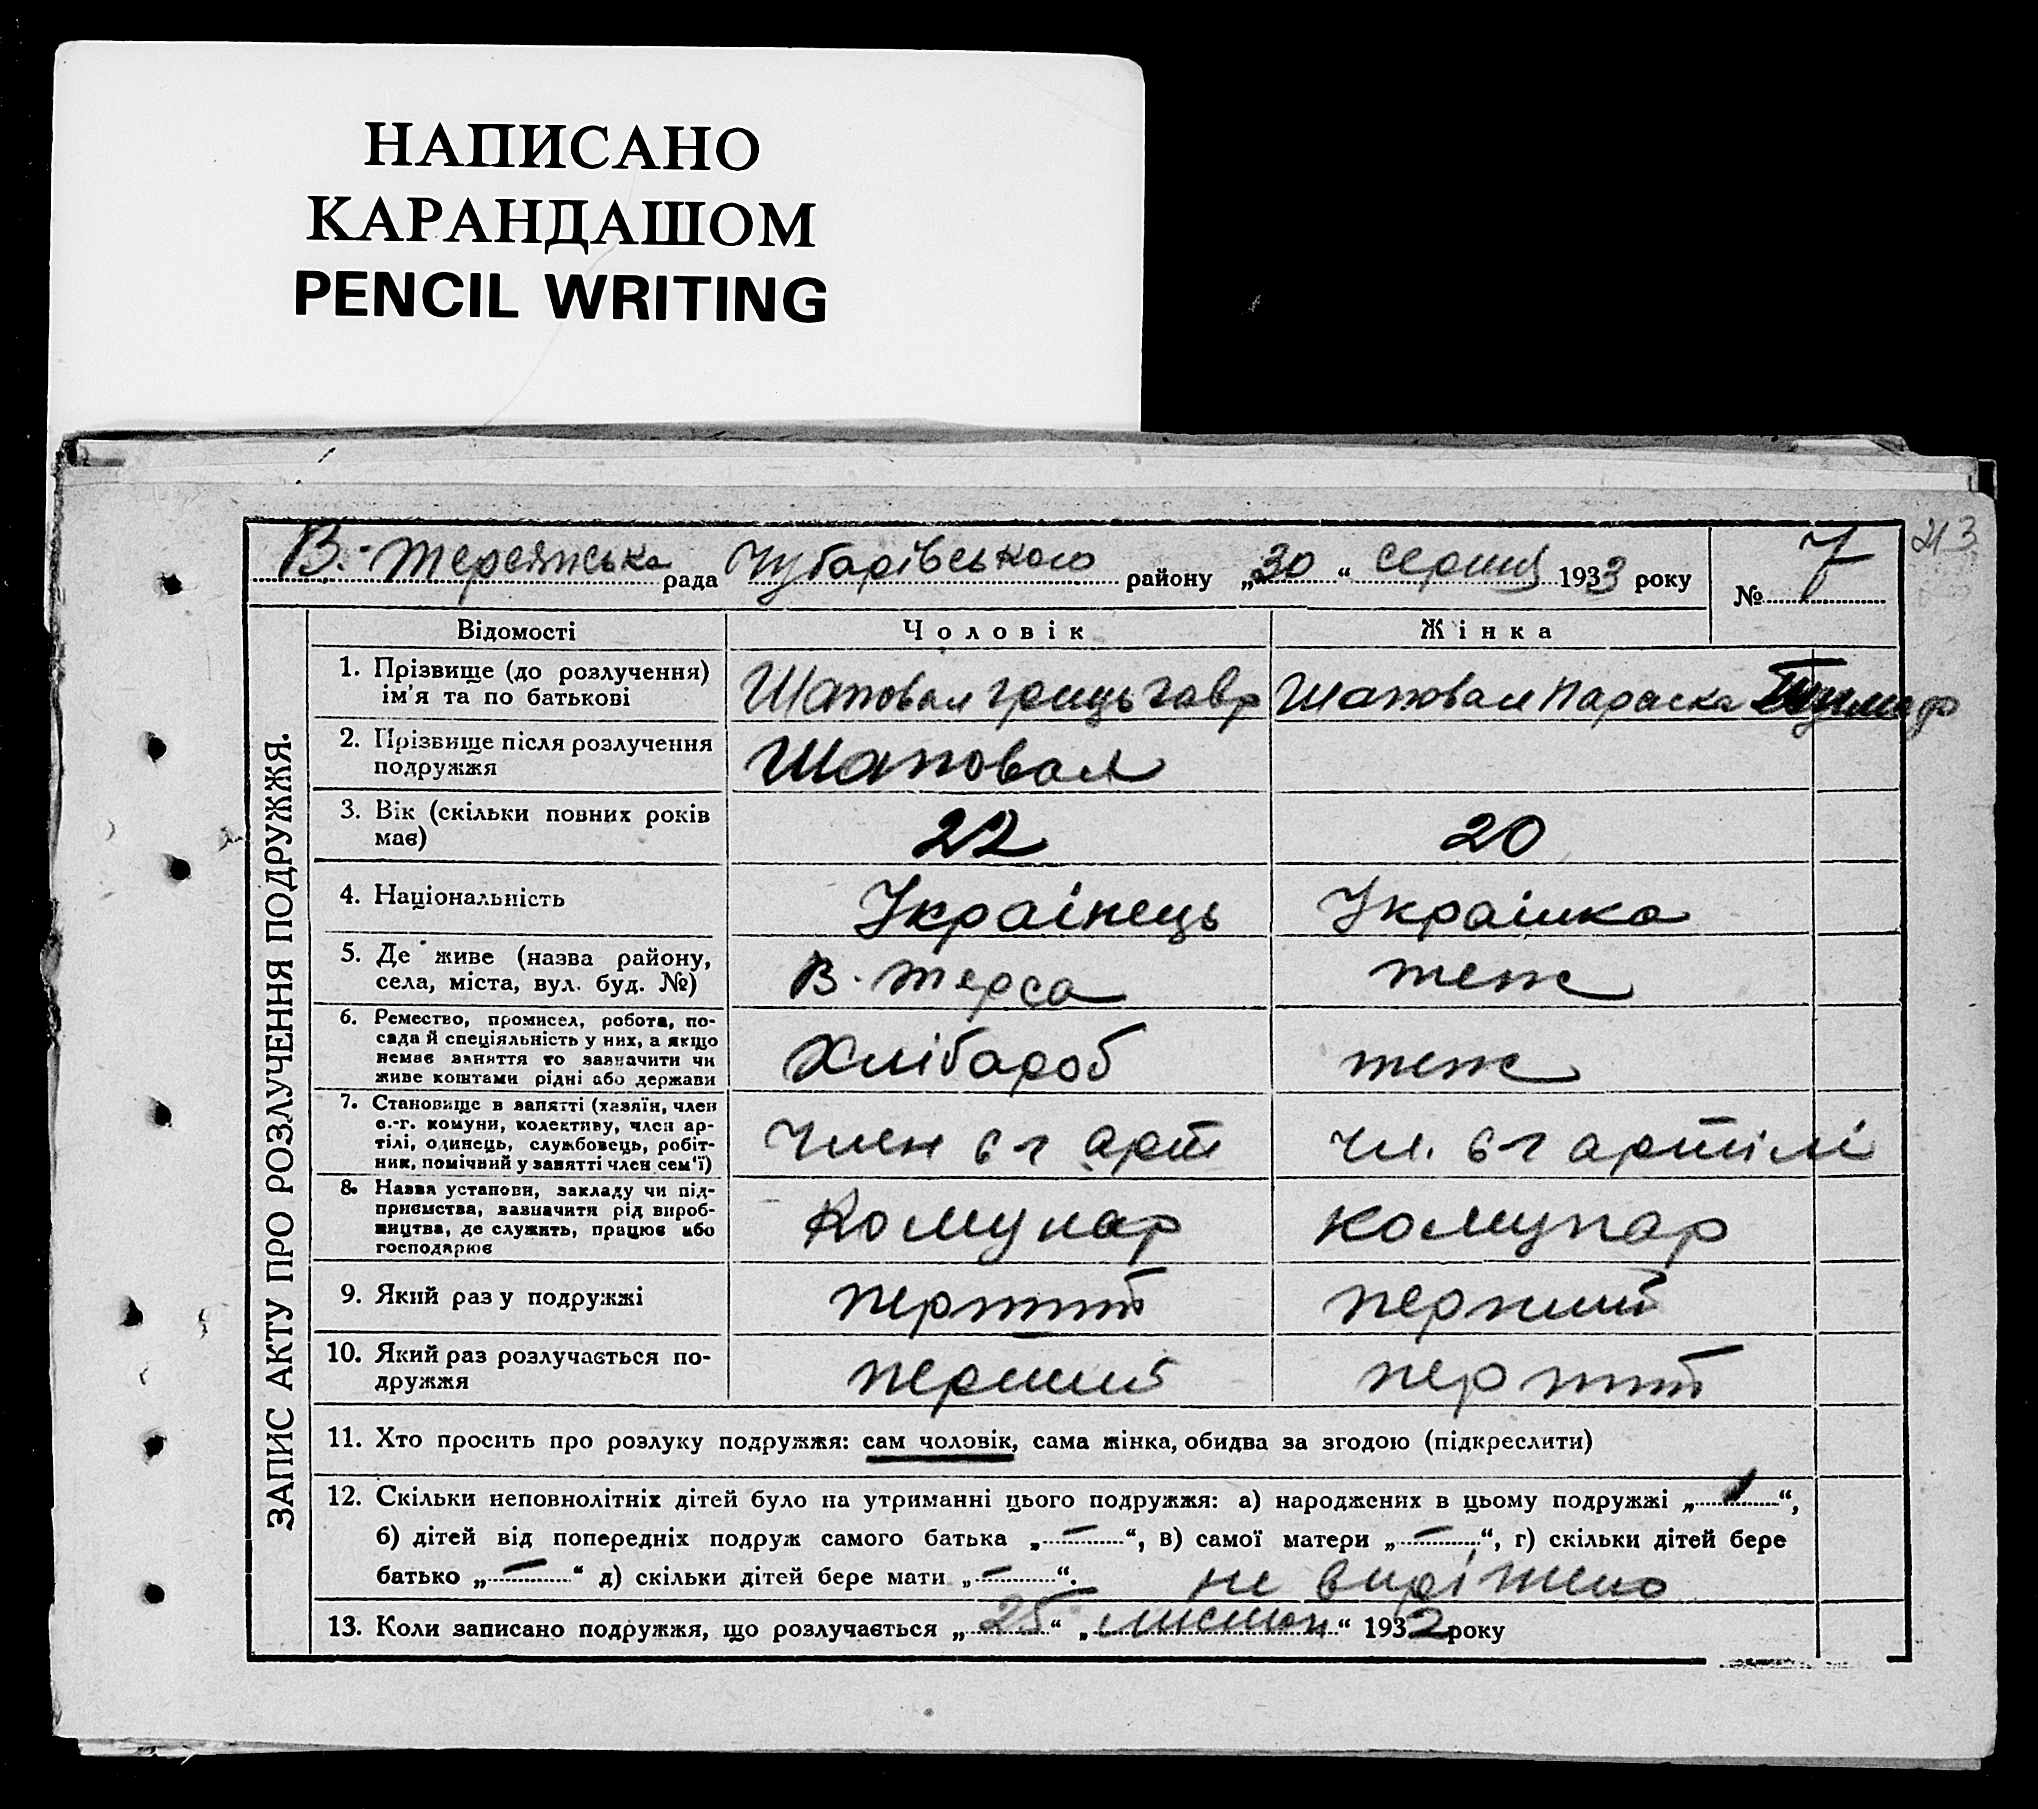 НАПИСАНО
КАРАНДАШОМ
PENCIL WRITING
213
В.-Терсянська рада Чубарівського району „30“ серпня 1933 року № 7
ЗАПИС АКТУ ПРО РОЗЛУЧЕННЯ ПОДРУЖЖЯ.
Відомості Чоловік Жінка
1. Прізвище (до розлучення) ім'я та по батькові Шаповал Гриць Гавр Шаповал Параска
2. Прізвище після розлучення подружжя Шаповал
3. Вік (скільки повних років має) 22 20
4. Національність Українець Українка
5. Де живе (назва району, села, міста, вул. буд. №) В. Терса теж
6. Ремество, промисел, робота, посада й спеціяльність у них, а якщо немає заняття то зазначити чи живе коштами рідні або держави Хлібароб теж
7. Становище в занятті (хазяїн, член с.-г. комуни, колективу, член артілі, одинець, службовець, робітник, помічний у занятті член сем'ї) Член с г арт чл. с г артілі
8. Назва установи, закладу чи підприємства, зазначити рід виробництва, де служить, працює або господарює Комунар комунар
9. Який раз у подружжі перший перший
10. Який раз розлучається подружжя перший перший
11. Хто просить про розлуку подружжя: сам чоловік, сама жінка, обидва за згодою (підкреслити)
12. Скільки неповнолітніх дітей було на утриманні цього подружжя: а) народжених в цьому подружжі „1“,
б) дітей від попередніх подруж самого батька „—“, в) самої матери „—“, г) скільки дітей бере
батько „—“ д) скільки дітей бере мати „—“. не вирішено
13. Коли записано подружжя, що розлучається „25“ „листоп“ 1932 року